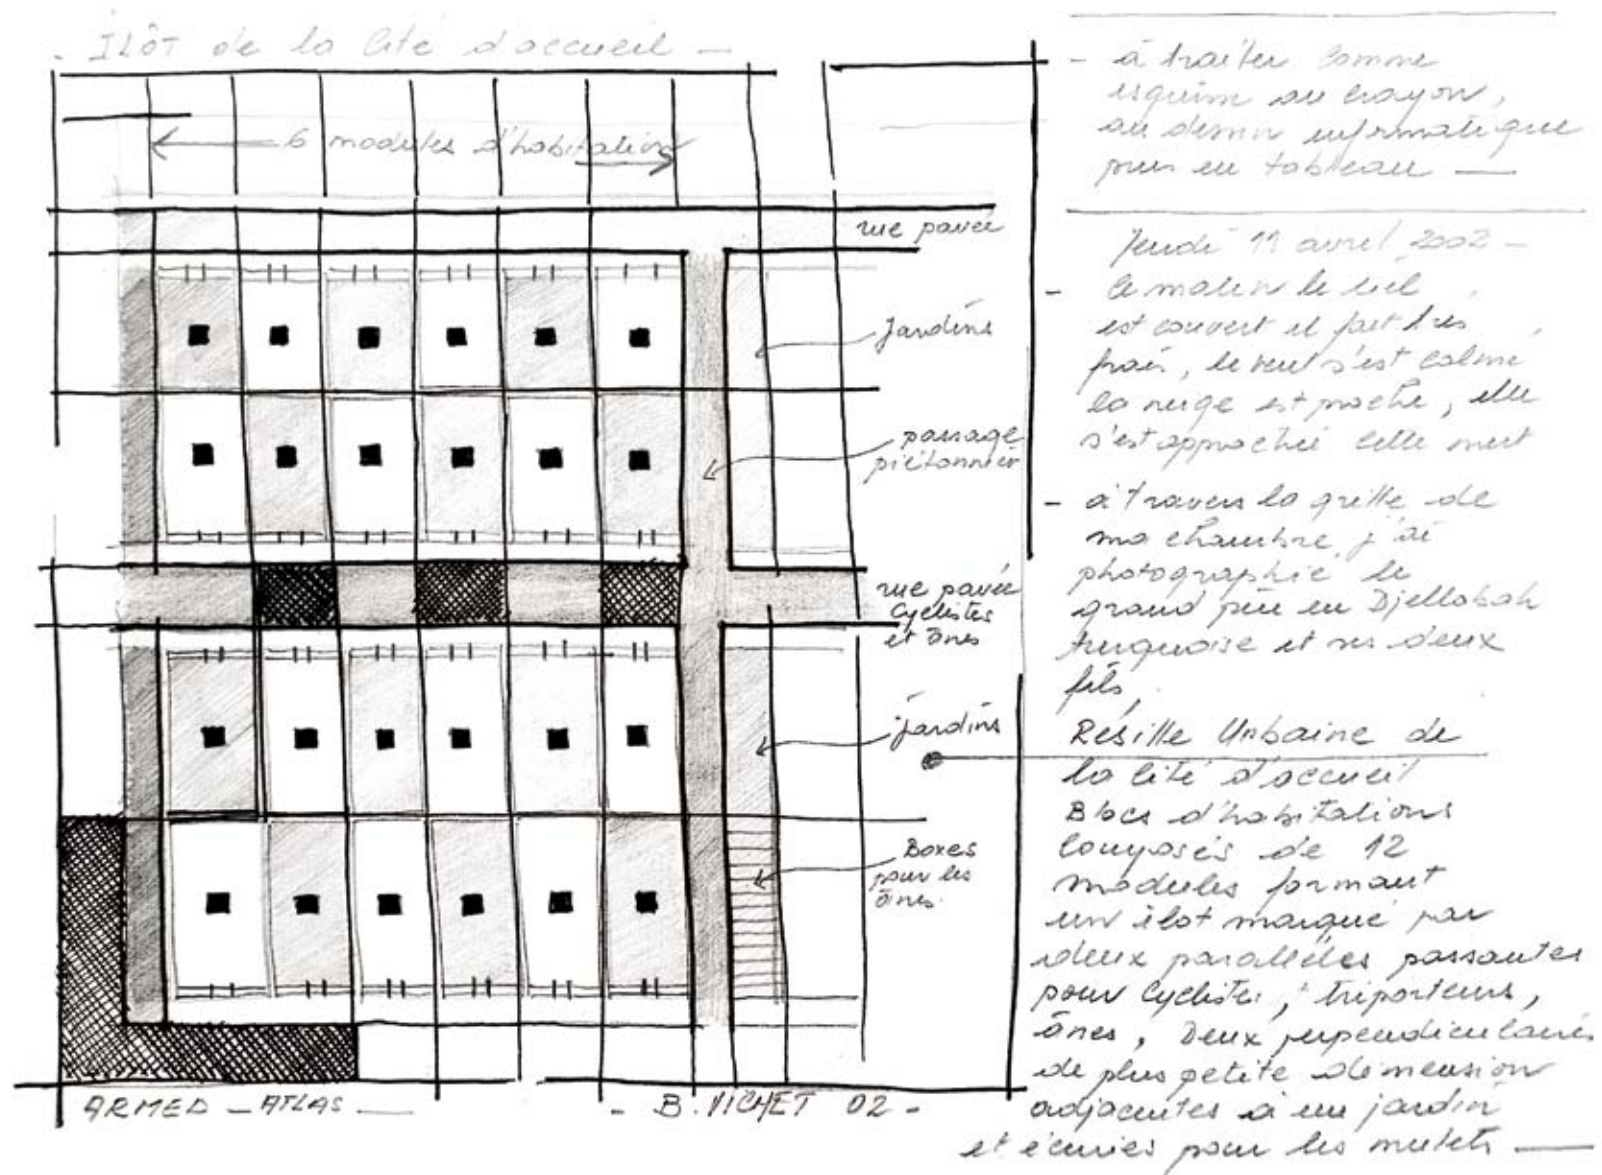 - ILÔT de la Cité d'accueil -
6 modules d'habitation
rue pavée
Jardins
passage
piétonnier
rue pavée
Cyclistes
et ânes
jardins
Boxes
pour les
ânes
ARMED - ATLAS
- B. VICHET 02 -
- à traiter comme
esquisse au crayon,
au dessin informatique
puis en tableau
Jeudi 11 avril 2002 -
- le matin le ciel
est couvert il fait très
frais, le vent s'est calmé
la neige est proche, elle
s'est approchée cette nuit
- à travers la grille de
ma chambre, j'ai
photographié le
grand père en Djellabah
turquoise et ses deux
fils,
Résille Urbaine de
la Cité d'accueil
Blocs d'habitations
composés de 12
modules formant
un ilot marqué par
deux parallèles passantes
pour Cyclistes, triporteurs,
ânes, Deux perpendiculaires
de plus petite dimension
adjacentes à un jardin
et écuries pour les mulets